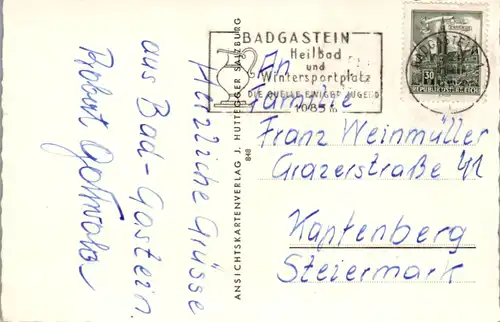 Herzliche Grüsse
aus Bad-Gastein.
Robert
ANSICHTSKARTENVERLAG J. HUTTEGGER SALZBURG
848
BADGASTEIN
Heilbad
und
Wintersportplatz
DIE QUELLE EWIGER JUGEND
1083 m
30
REPUBLIK ÖSTERREICH
An
Familie
Franz Weinmüller
Grazerstraße 41
Kapfenberg
Steiermark